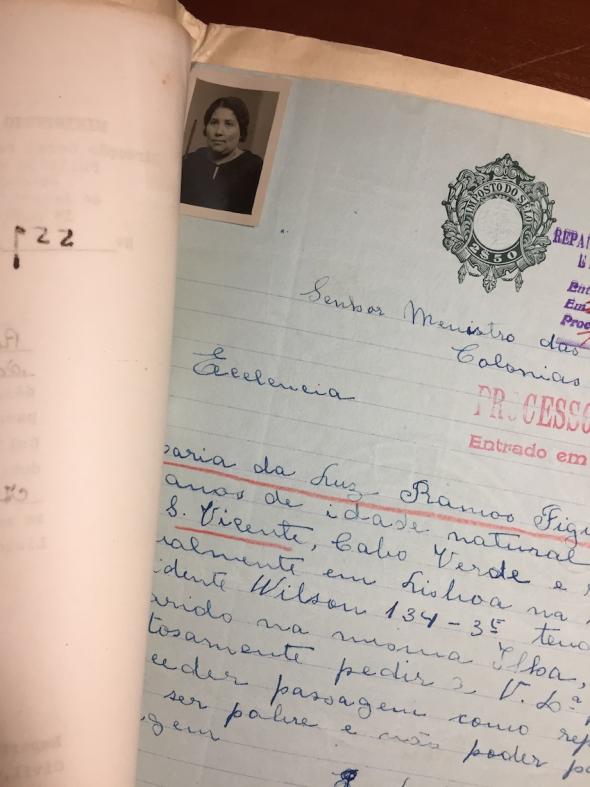 IMPOSTO DO SELO
2$50
Senhor Menistro das
Colonias
Excelencia
PROCESSO
Entrado em
aria da Luz Ramos Figu
anos de idade natural
S. Vicente, Cabo Verde e r
ialmente em Lisboa na
idente Wilson 134-3º tend
arido na mesma Ilha,
tosamente pedir a V. Exª
eder passagem como rep
ser pobre e não poder pa
gem